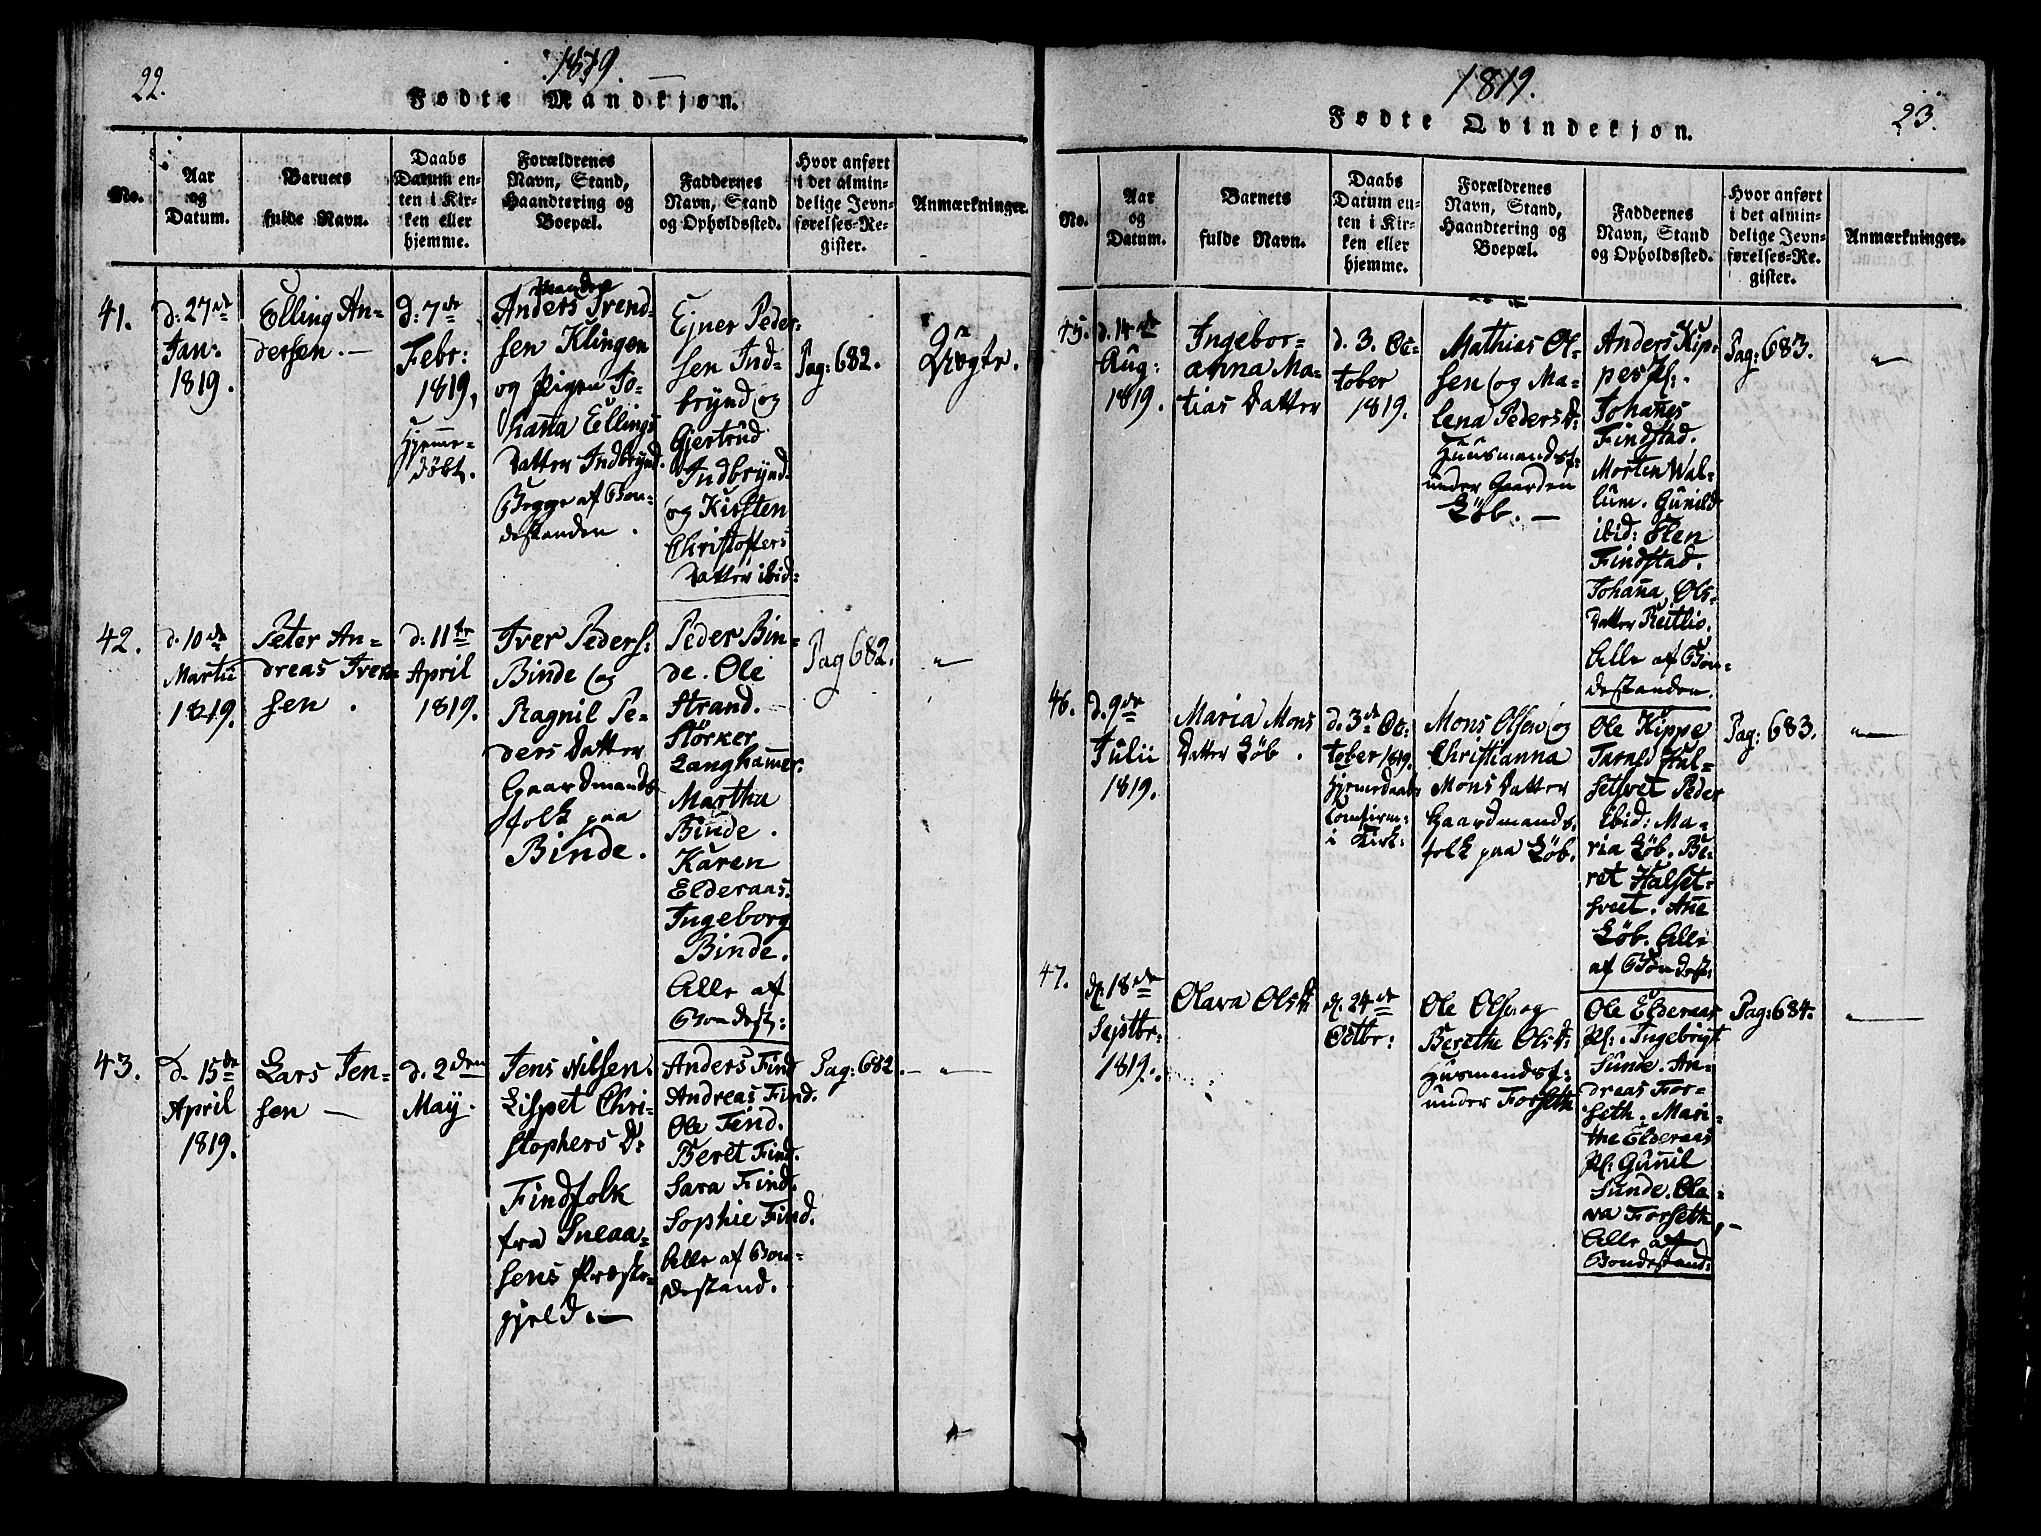 22.
1819.
Fødte Mandkjøn.
No.
Aar
og
Datum.
Barnets
fulde Navn.
Daabs
Datum en-
ten i Kir-
ken eller
hjemme.
Forældrenes
Navn, Stand,
Haandtering og
Boepæl.
Faddernes
Navn, Stand
og Opholdssted.
Hvor anført
i det almin-
delige Jevn-
førelses-Re-
gister.
Anmærkninger.
41.
d: 27de
Jan:
1819.
Elling An-
dersen. —
d: 7de
Febr:
1819,
Hjeme-
døbt.
Anders Ivend-
sen Klingen
og Pigen Jo-
hana Ellings
Datter Indbrynd.
Begge af Bon-
destanden.
Ejner Peder-
sen Ind-
brynd og
Gjertrud
Indbrynd
og Kirsten
Christofers
Datter ibid:
Pag: 682.
Uægte.
42.
d. 10de
Martii
1819.
Peter An-
dreas Iver-
sen.
d: 11te
April
1819.
Iver Peders:
Binde og
Ragnil Pe-
ders Datter
Gaardmands
folk paa
Binde.
Peder Bin-
de. Ole
Strand.
Størker
Langhamer.
Martha
Binde.
Karen
Elderaas.
Ingeborg
Binde.
Alle af
Bondest:
Pag 682.
"
43.
d. 15de
April
1819.
Lars Jen-
sen —
d. 2den
May.
Jens Nilsen.
Lispet Chri-
stophers D:
Findfolk
fra Sneaa-
sens Præste-
gjeld. —
Anders Find
Andreas Find.
Ole Find.
Beret Find.
Sara Find.
Sophie Find.
Alle af Bon-
destand.
Pag: 682.
"
1819.
Fødte Qvindekjøn.
23.
No.
Aar
og
Datum.
Barnets
fulde Navn.
Daabs
Datum en-
ten i Kir-
ken eller
hjemme.
Forældrenes
Navn, Stand,
Haandtering og
Boepæl.
Faddernes
Navn, Stand
og Opholdssted.
Hvor anført
i det almin-
delige Jevn-
førelses-Re-
gister.
Anmærkninger.
45.
d. 14de
Aug:
1819.
Ingebor-
anna Ma-
tias Datter
d. 3. Oc-
tober
1819.
Mathias Ol-
sen og Ma-
lena Peders D:
Huusmandsf:
under Gaarden
Løb. —
Anders Kip-
pe
Johanes
Findstad.
Morten Wal-
lum. Gunild
ibid: Sten
Findstad.
Johana Ols-
datter Reitlio.
Alle af Bon-
destanden.
Pag: 683.
"
46.
d. 9de
Julii
1819.
Maria Mons
Datter Løb.
d. 3de Oc-
tober 1819.
Hjemedaab
Confirm:
i Kirk:
Mons Olsen og
Christianna
Mons Datter
Gaardmands
folk paa Løb.
Ole Kippe
Halsetsvet Peder
ibid: Ma-
ria Løb. Be-
ret Halset-
svet. Ane
Løb. Alle
af Bondest:
Pag: 683.
"
47.
d. 18de
Septbr:
1819.
Olava Olsd:
d. 24de
Octbr:
Ole Olsen og
Berethe Olsd:
Husmandsf:
under Forseth
Ole Elderaas
Ingebrigt
Sunde. An-
dreas For-
seth. Mari-
the Elderaas
Gunil
Sunde. Ola-
va Forseth,
Alle af
Bondestand:
Pag: 684.
"